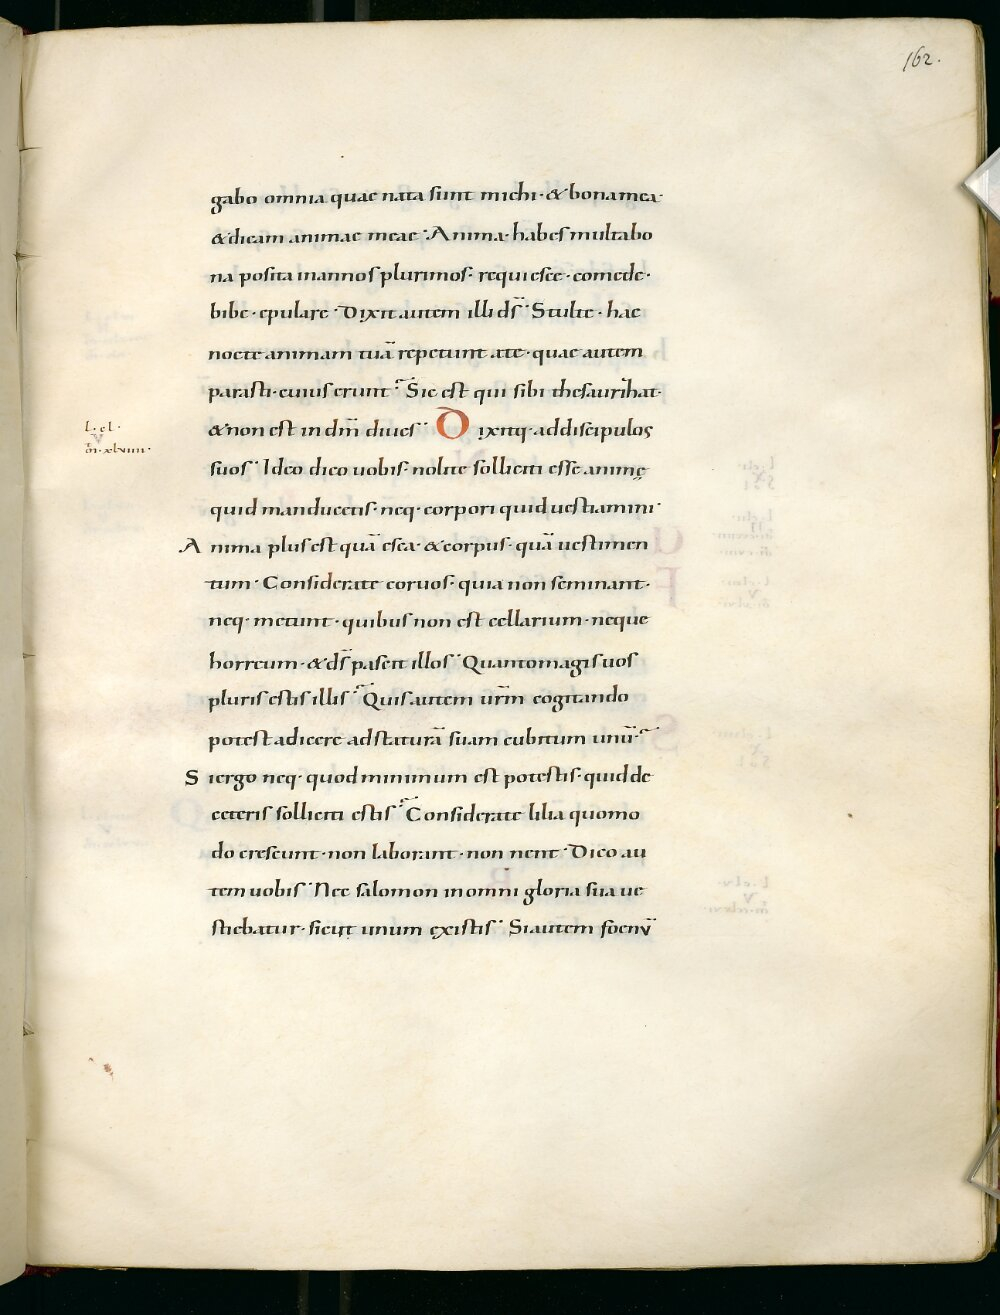 162.
gabo omnia quae nata sunt michi · & bona mea ·
& dicam animae meae · Anima · habes multa bo
na posita in annos plurimos · requiesce · comede ·
bibe · epulare · Dixit autem illi d̄s · Stulte · hac
nocte animam tuā repetunt a te · quae autem
parasti · cuius erunt · Sic est qui sibi thesaurizat ·
& non est in dm̄ dives · Dixitq· ad discipulos
l. cl.
V
m̄. xlviiii.
suos · Ideo dico vobis · nolite solliciti esse animę
quid manducetis · neq· corpori quid vestiamini ·
Anima plus est quā esca · & corpus · quā vestimen
tum · Considerate corvos · quia non seminant ·
neq· metunt · quibus non est cellarium · neque
horreum · & d̄s pascit illos · Quanto magis vos
pluris estis illis · Quis autem vr̄m cogitando
potest adicere ad staturā suam cubitum unū ·
Si ergo neq· quod minimum est potestis · quid de
ceteris solliciti estis · Considerate lilia quomo
do crescunt · non laborant · non nent · Dico au
tem vobis · Nec salomon in omni gloria sua ve
stiebatur · sicut unum ex istis · Si autem foenū